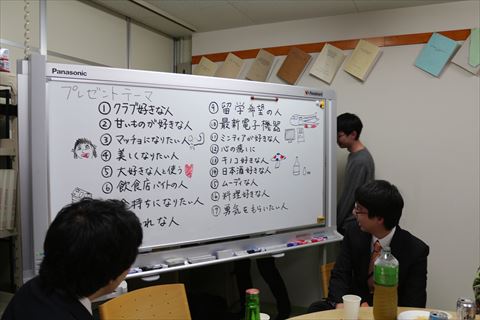 Panasonic
Panaboard
プレゼントテーマ
① クラブ好きな人
② 甘いものが好きな人
③ マッチョになりたい人
④ 美しくなりたい人
⑤ 大好きな人と使う
⑥ 飲食店バイトの人
金持ちになりたい人
れな人
⑨ 留学希望の人
⑩ 最新電子機器
⑪ ミンティアが好きな人
⑫ 心の癒しに
⑬ チョコ好きな人
⑭ 日本酒好きな人
⑮ ムーディな人
⑯ 料理好きな人
⑰ 勇気をもらいたい人